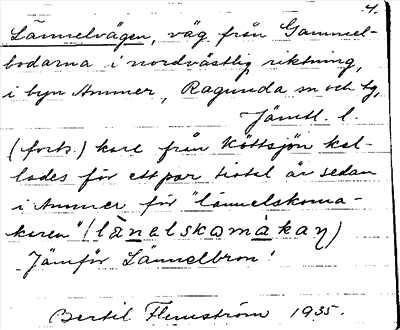 4.
Lännelvägen, väg från Gammel-
bodarna i nordvästlig riktning,
i byn Ammer, Ragunda sn och tg,
Jämtl. l.
(forts.) karl från Köttsjön kal-
lades för ett par tiotal år sedan
i Ammer för "lännelskoma-
karen" (lànelskomàkaɳ)
Jämför Lännelbron!
Bertil Flemström 1935.